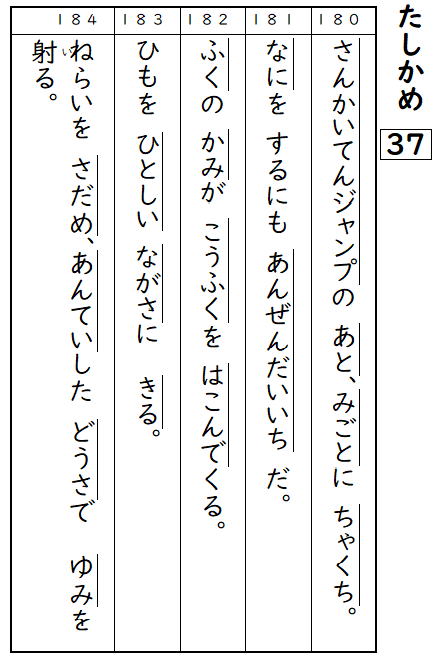 たしかめ
37
180
さんかいてんジャンプの あと、みごとに ちゃくち。
181
なにを するにも あんぜんだいいち だ。
182
ふくの かみが こうふくを はこんでくる。
183
ひもを ひとしい ながさに きる。
184
ねらいを さだめ、あんていした どうさで ゆみを
い
射る。